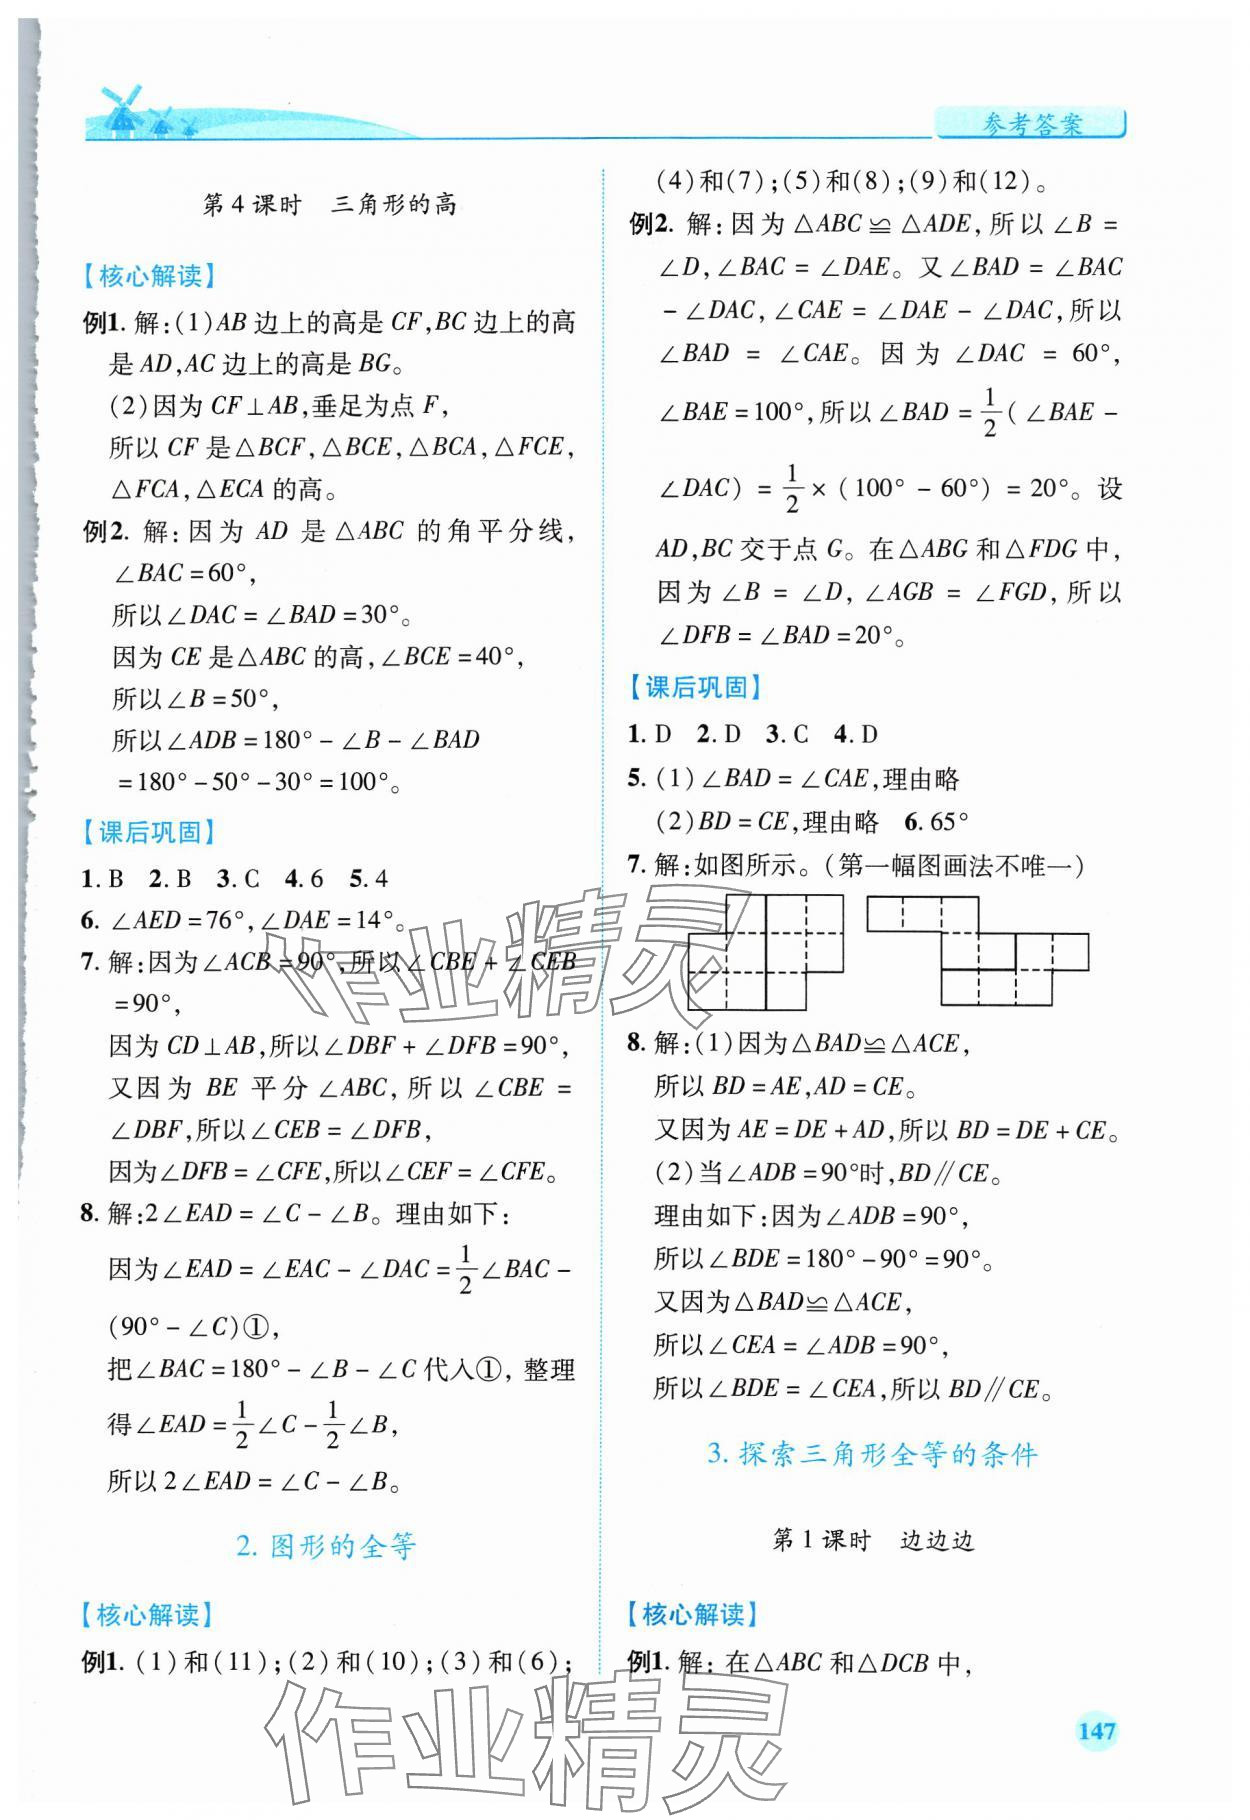 参考答案
第4课时 三角形的高
【核心解读】
例1. 解:(1)AB边上的高是CF,BC边上的高
是AD,AC边上的高是BG。
(2)因为CF⊥AB,垂足为点F,
所以CF是△BCF,△BCE,△BCA,△FCE,
△FCA,△ECA的高。
例2. 解:因为AD是△ABC的角平分线,
∠BAC=60°,
所以∠DAC=∠BAD=30°。
因为CE是△ABC的高,∠BCE=40°,
所以∠B=50°,
所以∠ADB=180°-∠B-∠BAD
=180°-50°-30°=100°。
【课后巩固】
1. B 2. B 3. C 4. 6 5. 4
6. ∠AED=76°,∠DAE=14°。
7. 解:因为∠ACB=90°,所以∠CBE+∠CEB
=90°,
因为CD⊥AB,所以∠DBF+∠DFB=90°,
又因为BE平分∠ABC,所以∠CBE=
∠DBF,所以∠CEB=∠DFB,
因为∠DFB=∠CFE,所以∠CEF=∠CFE。
8. 解:2∠EAD=∠C-∠B。理由如下:
因为∠EAD=∠EAC-∠DAC=1/2∠BAC-
(90°-∠C)①,
把∠BAC=180°-∠B-∠C代入①,整理
得∠EAD=1/2∠C-1/2∠B,
所以2∠EAD=∠C-∠B。
2. 图形的全等
【核心解读】
例1. (1)和(11);(2)和(10);(3)和(6);
(4)和(7);(5)和(8);(9)和(12)。
例2. 解:因为△ABC≌△ADE,所以∠B=
∠D,∠BAC=∠DAE。又∠BAD=∠BAC
-∠DAC,∠CAE=∠DAE-∠DAC,所以
∠BAD=∠CAE。因为∠DAC=60°,
∠BAE=100°,所以∠BAD=1/2(∠BAE-
∠DAC)=1/2×(100°-60°)=20°。设
AD,BC交于点G。在△ABG和△FDG中,
因为∠B=∠D,∠AGB=∠FGD,所以
∠DFB=∠BAD=20°。
【课后巩固】
1. D 2. D 3. C 4. D
5. (1)∠BAD=∠CAE,理由略
(2)BD=CE,理由略 6. 65°
7. 解:如图所示。(第一幅图画法不唯一)
8. 解:(1)因为△BAD≌△ACE,
所以BD=AE,AD=CE。
又因为AE=DE+AD,所以BD=DE+CE。
(2)当∠ADB=90°时,BD∥CE。
理由如下:因为∠ADB=90°,
所以∠BDE=180°-90°=90°。
又因为△BAD≌△ACE,
所以∠CEA=∠ADB=90°,
所以∠BDE=∠CEA,所以BD∥CE。
3. 探索三角形全等的条件
第1课时 边边边
【核心解读】
例1. 解:在△ABC和△DCB中,
147
作业精灵
作业精灵